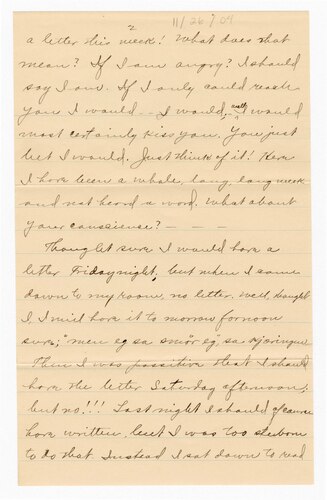 2
11/26/09
a letter this week! What does that
mean? If I am angry? I should
say I am. If I only could reach
you I would - I would, really I would
most certainly kiss you. You just
bet I would. Just think of it! Here
I have been a whole, long, long week
and not heard a word. What about
your consciense? — — —
Thought sure I would have a
letter Friday night, but when I came
down to my room, no letter. Well, thought
I, I will have it to morrow fornoon
sure, "men eg sa
Then I was possitive that I should
have the letter Saturday afternoon,
but no!!! Last night I should of course
have written, but I was too stuborn
to do that. Instead I sat down to read